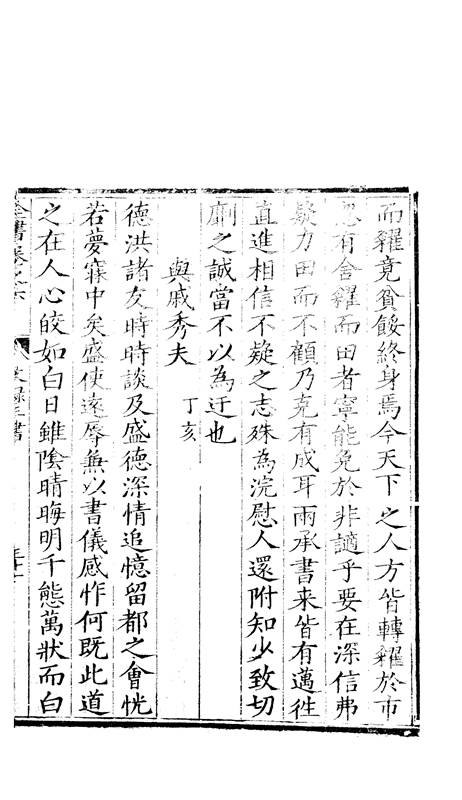 而糴竟貧餒終身焉今天下之人方皆轉糴於市
忽有舍糴而田者寧能免於非謫乎要在深信弗
疑力田而不顧乃克有成耳兩承書来皆有邁徃
直進相信不疑之志殊為浣慰人還附知少致切
劘之誠當不以為迂也
與戚秀夫 丁亥
德洪諸友時時談及盛德深情追憶留都之會恍
若夢寐中矣盛使遠辱兼以書儀感怍何既此道
之在人心皎如白日雖陰晴晦明千態萬狀而白
全書卷之六 文録三書